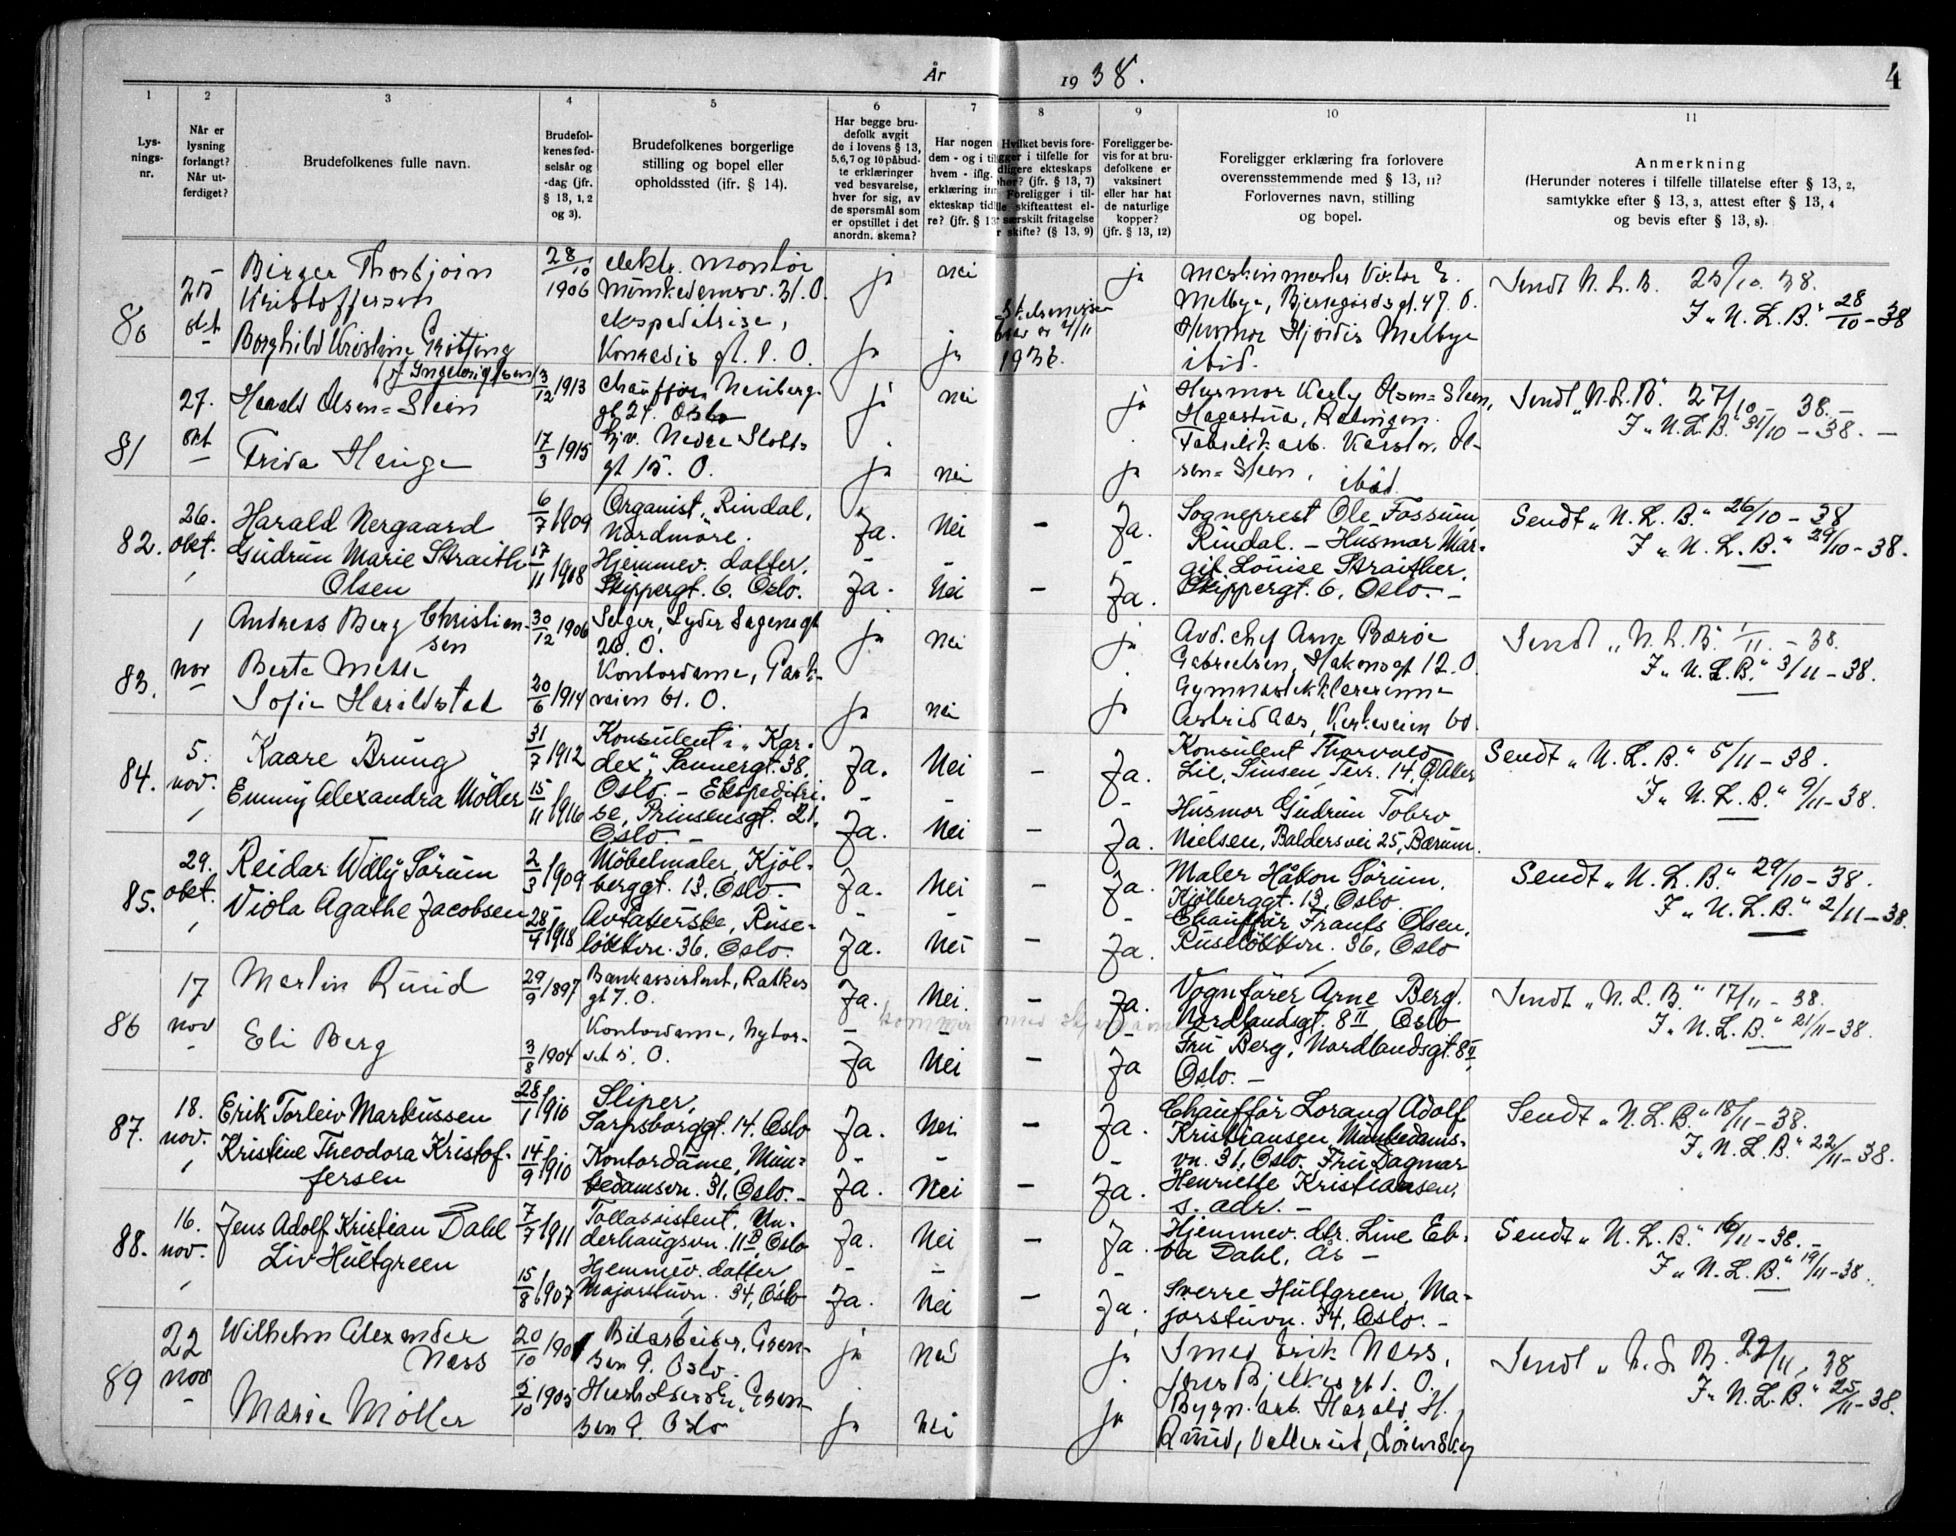 År 1938.
4
1 2 3 4 5 6 7 8 9 10 11
Lys-
nings-
nr.
Når er
lysning
forlangt?
Når ut-
ferdiget?
Brudefolkenes fulle navn.
Brudefol-
kenes fød-
selsår og
-dag (jfr.
§ 13, 1, 2
og 3).
Brudefolkenes borgerlige
stilling og bopel eller
opholdssted (ifr. § 14).
Har begge bru-
defolk avgit
de i lovens § 13,
5,6,7 og 10 påbud-
te erklæringer
ved besvarelse,
hver for sig, av
de spørsmål som
er opstillet i det
anordn. skema?
Har nogen
dem - og i til
hvem - iflg.
erklæring in
ekteskap tid
re? (jfr. § 13
Hvilket bevis fore-
ligger i tilfelle for
tidligere ekteskaps
ophør? (jfr. § 13, 7)
Foreligger i til-
felle skifteattest el-
særskilt fritagelse
r skifte? (§ 13, 9)
Foreligger be-
vis for at bru-
defolkene er
vaksinert
eller har hat
de naturlige
kopper?
(jfr. § 13, 12)
Foreligger erklæring fra forlovere
overensstemmende med § 13, 11?
Forlovernes navn, stilling
og bopel.
Anmerkning
(Herunder noteres i tilfelle tillatelse efter § 13, 2,
samtykke efter § 13, 3, attest efter § 13, 4
og bevis efter § 13, 8).
80
25 okt
Birger Thorbjörn
Kristoffersen
28/10 1906
elektr. montör
Munkedamsv. 31. O.
ja nei ja
Maskinmester Viktor E.
Melbye, Bjerregårdsgt. 47. O.
Sendt N. L. B. 25/10. 38.
I „N. L. B." 28/10-38
Borghild Kristine Gröttjing
(f. Ingebrigtsen)
3/12 1913
ekspeditrise,
gt. 1. O.
ja ja
er 4/11
1936.
Husmor Hjördis Melbye
ibid.
81
27. okt
Harald Olsen=Steen
chauffør, Neuberg-
gt. 24. Oslo
ja nei ja
Husmor Karly Olsen=Steen,
Hagastua, Rælingen.
Sendt „N.L.B". 27/10 - 38.-
I „N. L. B." 31/10-38.-
Frida Hauge
17/3 1915
hjv. Nedre Slotts=
gt 15. O.
ja nei ja
Fabrikkarb. Karsten Ol-
sen=Steen, ibid.
82.
26. okt.
Harald Nergaard
6/7 1909
Organist, Rindal,
Nordmöre.
Ja. Nei - Ja.
Sogneprest Ole Fossum,
Rindal. - Husmor Mar-
Sendt „N. L. B." 26/10-38
I „N. L. B." 29/10-38.
Gudrun Marie Straith-
Olsen
17/11 1908
Hjemmev. datter.
Skippergt. 6. Oslo.
Ja. Nei - Ja.
git Louise Straither.
Skippergt. 6, Oslo.-
83.
1 nov
Andreas Berg Christien-
sen
30/12 1906
Selger, Lyder Sagensgt
26. O.
ja nei ja
Avd. chef Arne Baröe
Gabrielsen, Hakonsgt 12. O.
Sendt „N. L. B." 1/11.-38.
I „N. L. B." 3/11-38.
Berte
Sofie Haraldstad
20/6 1914
Kontordame, Park-
veien 61. O.
ja nei ja
Gymnastikklærerinne
Astrid Aas, Kirkeveien 60.
84.
5. nov.
Kaare Brung
31/7 1912
Konsulent i „Kar-
dex", Sannergt. 38,
Oslo.- Ekspeditri-
Ja. Nei - Ja.
Konsulent Thorvald
Lie, Sinsen Terr. 14, Ö. Aker
Sendt „N. L. B." 5/11-38.
I „N. L. B." 9/11-38.
Emmy Alexandra Möller
15/11 1916
se, Prinsensgt. 21,
Oslo -
Ja. Nei - Ja.
Husmor Gudrun Tobro
Nielsen, Baldersvei 25, Bærum.
85.
29. okt.
Reidar Willy Sörum
2/3 1909
Möbelmaler, Kjöl-
berggt. 13, Oslo.
Ja. Nei - Ja.
Maler Håkon Sörum,
Kjölberggt. 13, Oslo.
Sendt „N. L. B." 29/10-38.
I „N. L. B." 2/11-38.
Viola Agathe Jacobsen
28/4 1918
Avtatterske, Ruse-
lökkvn. 36, Oslo.
Ja. Nei - Ja.
Chauffør Frants Olsen,
Ruselökkvn. 36, Oslo
86
17 nov
Martin Ruud
29/9 1897
Bankassistent, Ratkes
gt 7. O.
Ja. Nei. - Ja.
kommer med
Vognfører Arne Berg.
Nordlandsgt. 8 II Oslo
Sendt „N. L. B." 17/11-38.
I „N. L. B." 21/11-38.
Eli Berg
3/8 1904
Kontordame, Nytor-
vet 5. O.
Ja Nei - Ja
Fru Berg, Nordlandsgt. 8 II,
Oslo.-
87.
18. nov.
Erik Torleiv Markussen
28/1 1910
Sliper,
Sarpsborggt. 14. Oslo
Ja. Nei - Ja.
Chauffør Lorang Adolf
Kristiansen, Munkedams-
Sendt „N. L. B." 18/11-38.
I „N. L. B." 22/11-38.
Kristine Theodora Kristof-
fersen
14/9 1910
Kontordame, Mun-
kedamsvn. 31, Oslo.-
Ja. Nei - Ja.
vn. 31, Oslo. Fru Dagmar
Henriette Kristiansen,
s. adr.-
88.
16. nov.
Jens Adolf Kristian Dahl
7/7 1911
Tollassistent, Un-
derhaugsvn. 11 B, Oslo
Ja. Nei - Ja.
Hjemmev. dtr. Line Eb-
ba Dahl, Ås -
Sendt „N. L. B." 16/11-38.-
I „N. L. B." 19/11-38.
Liv Hultgreen
15/8 1907
Hjemmev. datter
Majorstuvn. 34, Oslo
Ja. Nei - Ja.
Sverre Hultgreen, Ma-
jorstuvn. 34, Oslo.-
89
22 nov
Wilhelm Alexander
Næss
20/10 1901
Bilarbeider, Gren-
sen 9. Oslo.
ja nei ja
Smed Erik Næss,
Jens Bjelkesgt 1. O.
Sendt „N. L. B. 22/11, 38
I „N. L. B." 25/11-38.
Marie Möller
5/10 1905
Gren-
sen 9. Oslo
ja nei ja
Bygn. arb. Harald H.
Ruud, Vallerud, Lörenskog